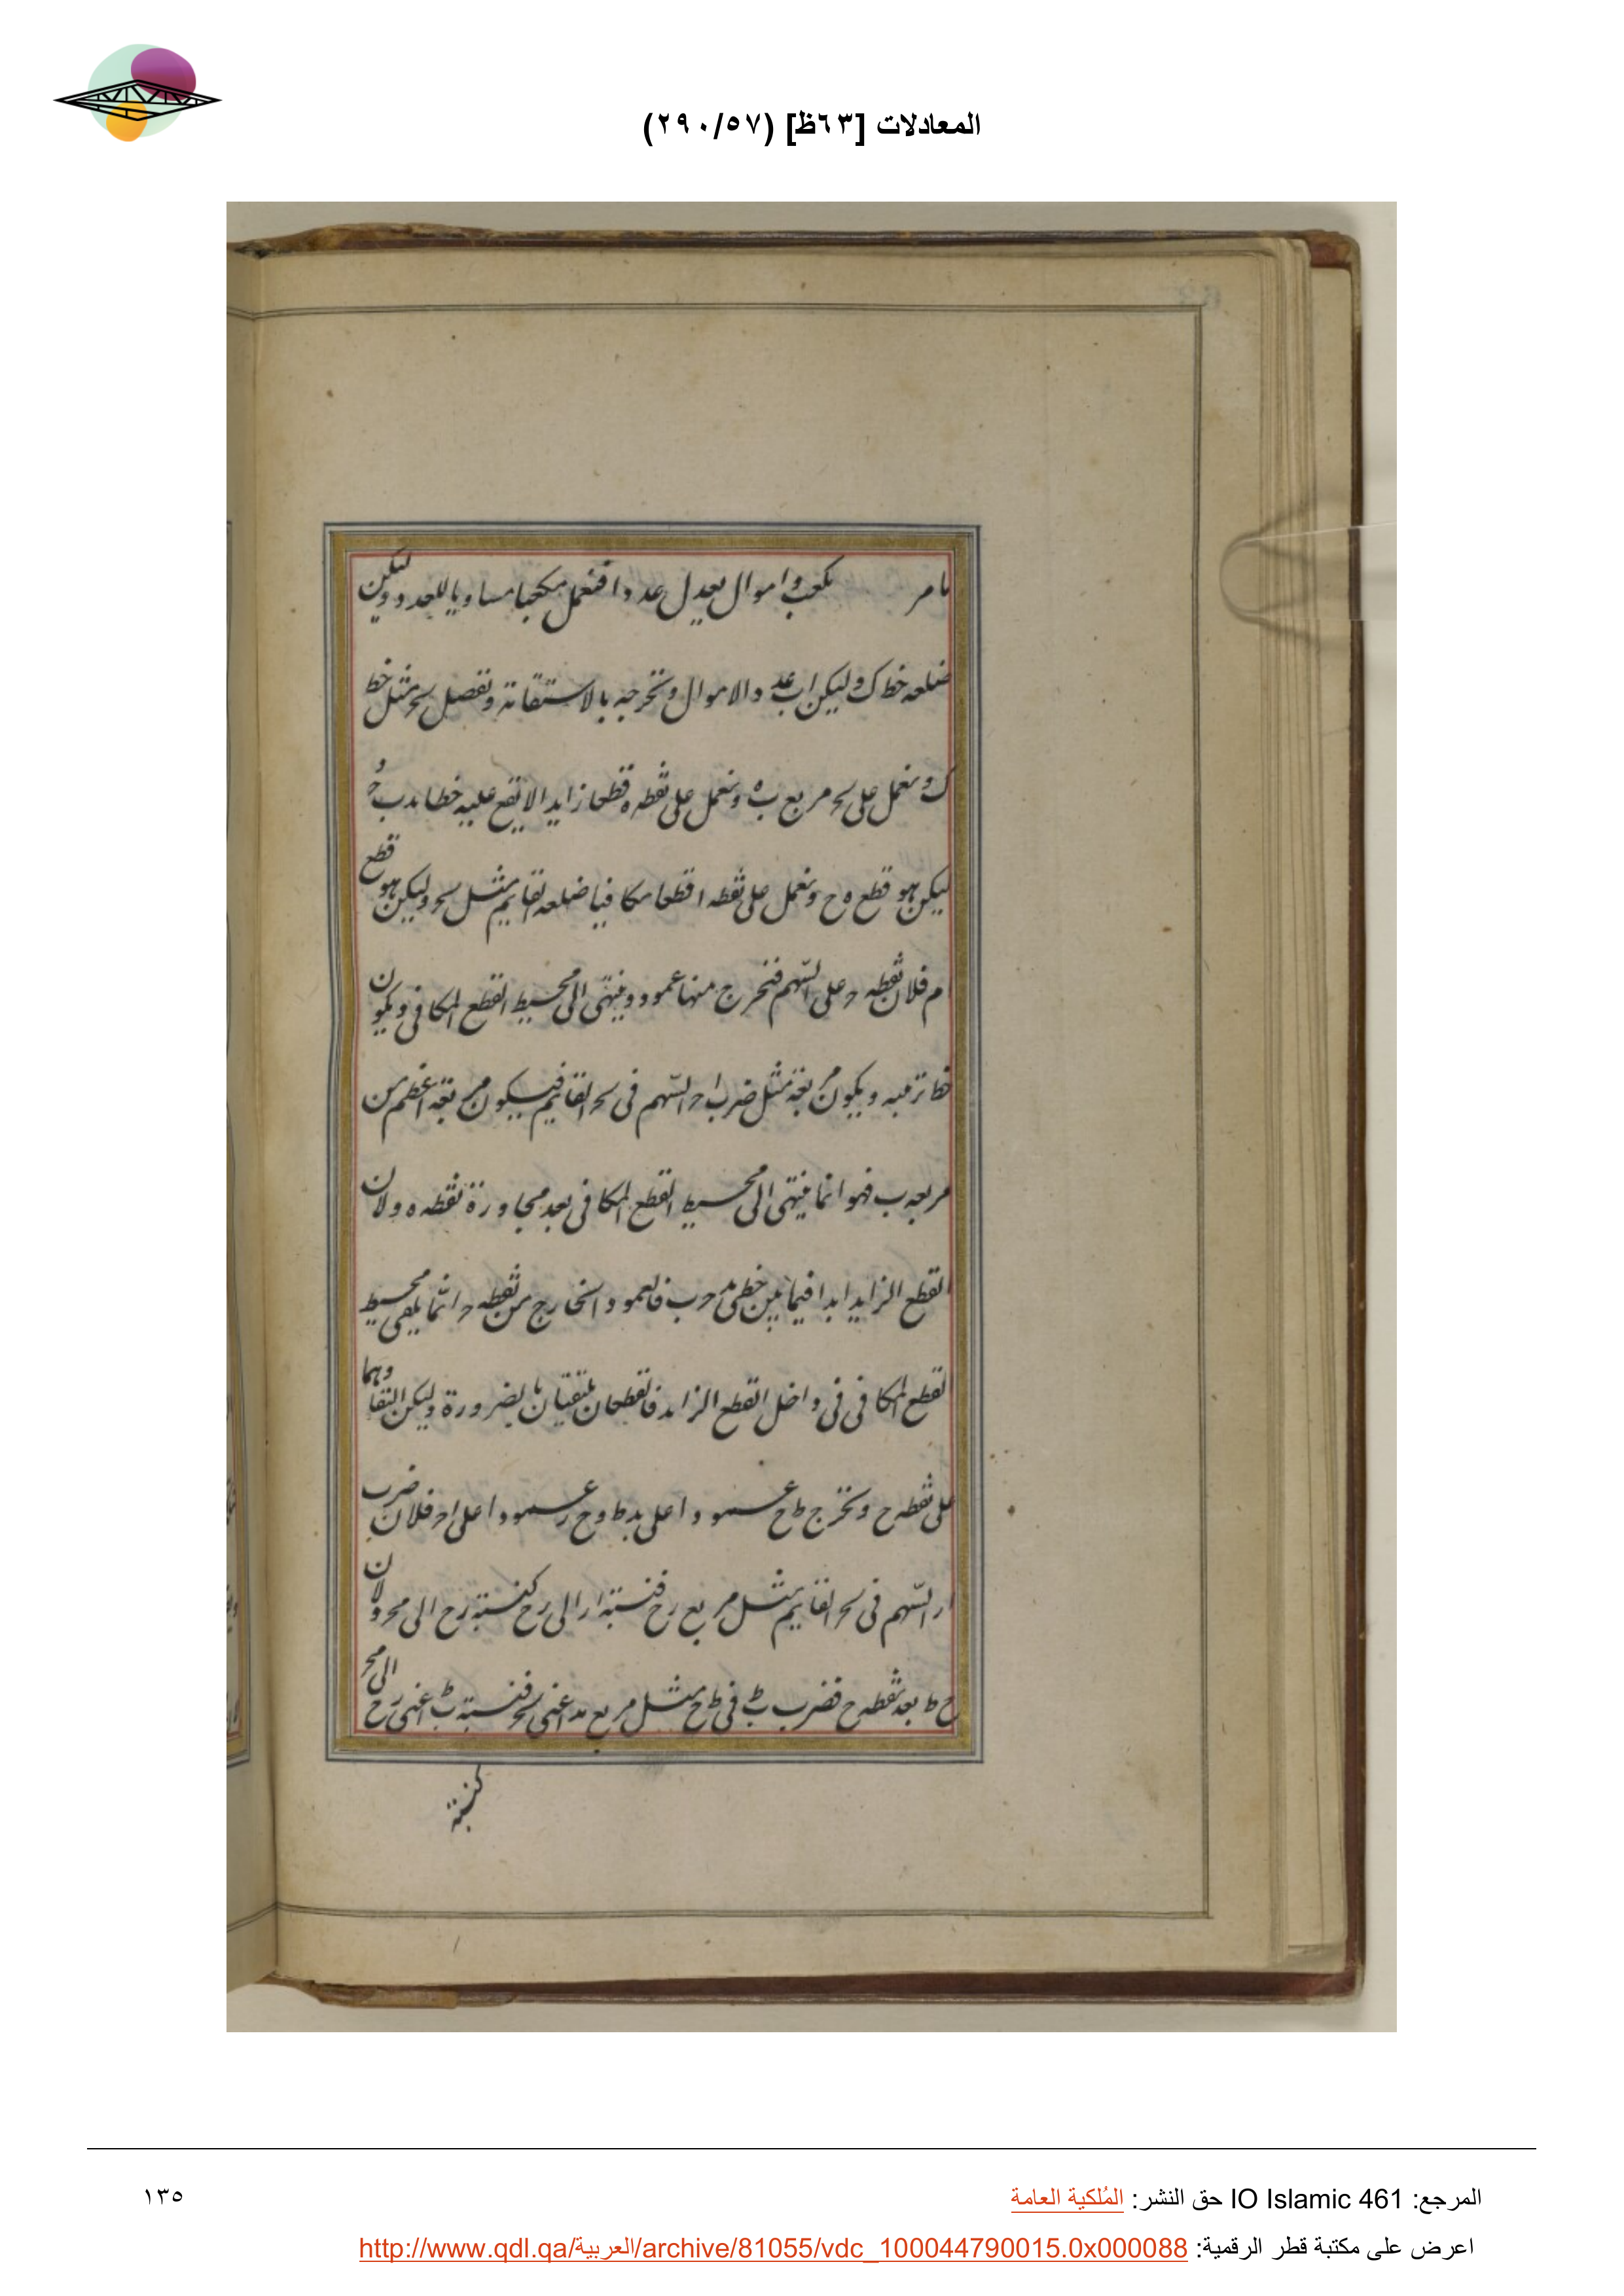 المعادلات [٦٣ظ] (٢٩٠/٥٧)
مامر كعب واموال يعدل عددا فنعمل مكعبا مساويا للعدد وليكن
ضلعه خط ك وليكن اب عدد الاموال ونخرجه بالاستقامة ونفصل بحـ مثل خط
ك ونعمل على بحـ مربع ب ه ونعمل على نقطه ه قطعا زايدا لا يقع عليه خطا بد بحـ و
ليكن هو قطع ه ح ونعمل على نقطه ا قطعا مكافيا ضلعه القايم مثل بحـ وليكن هو قطع
ام فلان نقطه حـ على السهم فنخرج منها عمودا وينتهى الى محيط القطع المكافى ويكون
خط ترتيبه ويكون مربعة مثل ضرب احـ السهم فى بحـ القايم فيكون مربعة اعظم من
مربعه ب فهو انما ينتهى الى محيط القطع المكافى بعد مجاوزة نقطه ه ولان
القطع الزايد ابدا فيما بين خطى بد حـب فالعمود الخارج من نقطه حـ انما يلقى محيط
القطع المكافى فى داخل القطع الزايد فالقطعان يلتقيان بالضرورة وليكن التقاوهما
على نقطه ح ونخرج ط ح عمودا على بد ط وح ر عمودا على احـ فلان ضرب
ار السهم فى بحـ القايم مثل مربع رح فنسبة ار الى رح كنسبة رح الى بحـ ولان
ح ط بعد نقطه ح فضرب بط فى ط ح مثل مربع بد اعنى بحـ فنسبة بط اعنى رح الى بحـ
كنسبة
المرجع: IO Islamic 461 حق النشر: المُلكية العامة
١٣٥
اعرض على مكتبة قطر الرقمية: http://www.qdl.qa/العربية/archive/81055/vdc_100044790015.0x000088